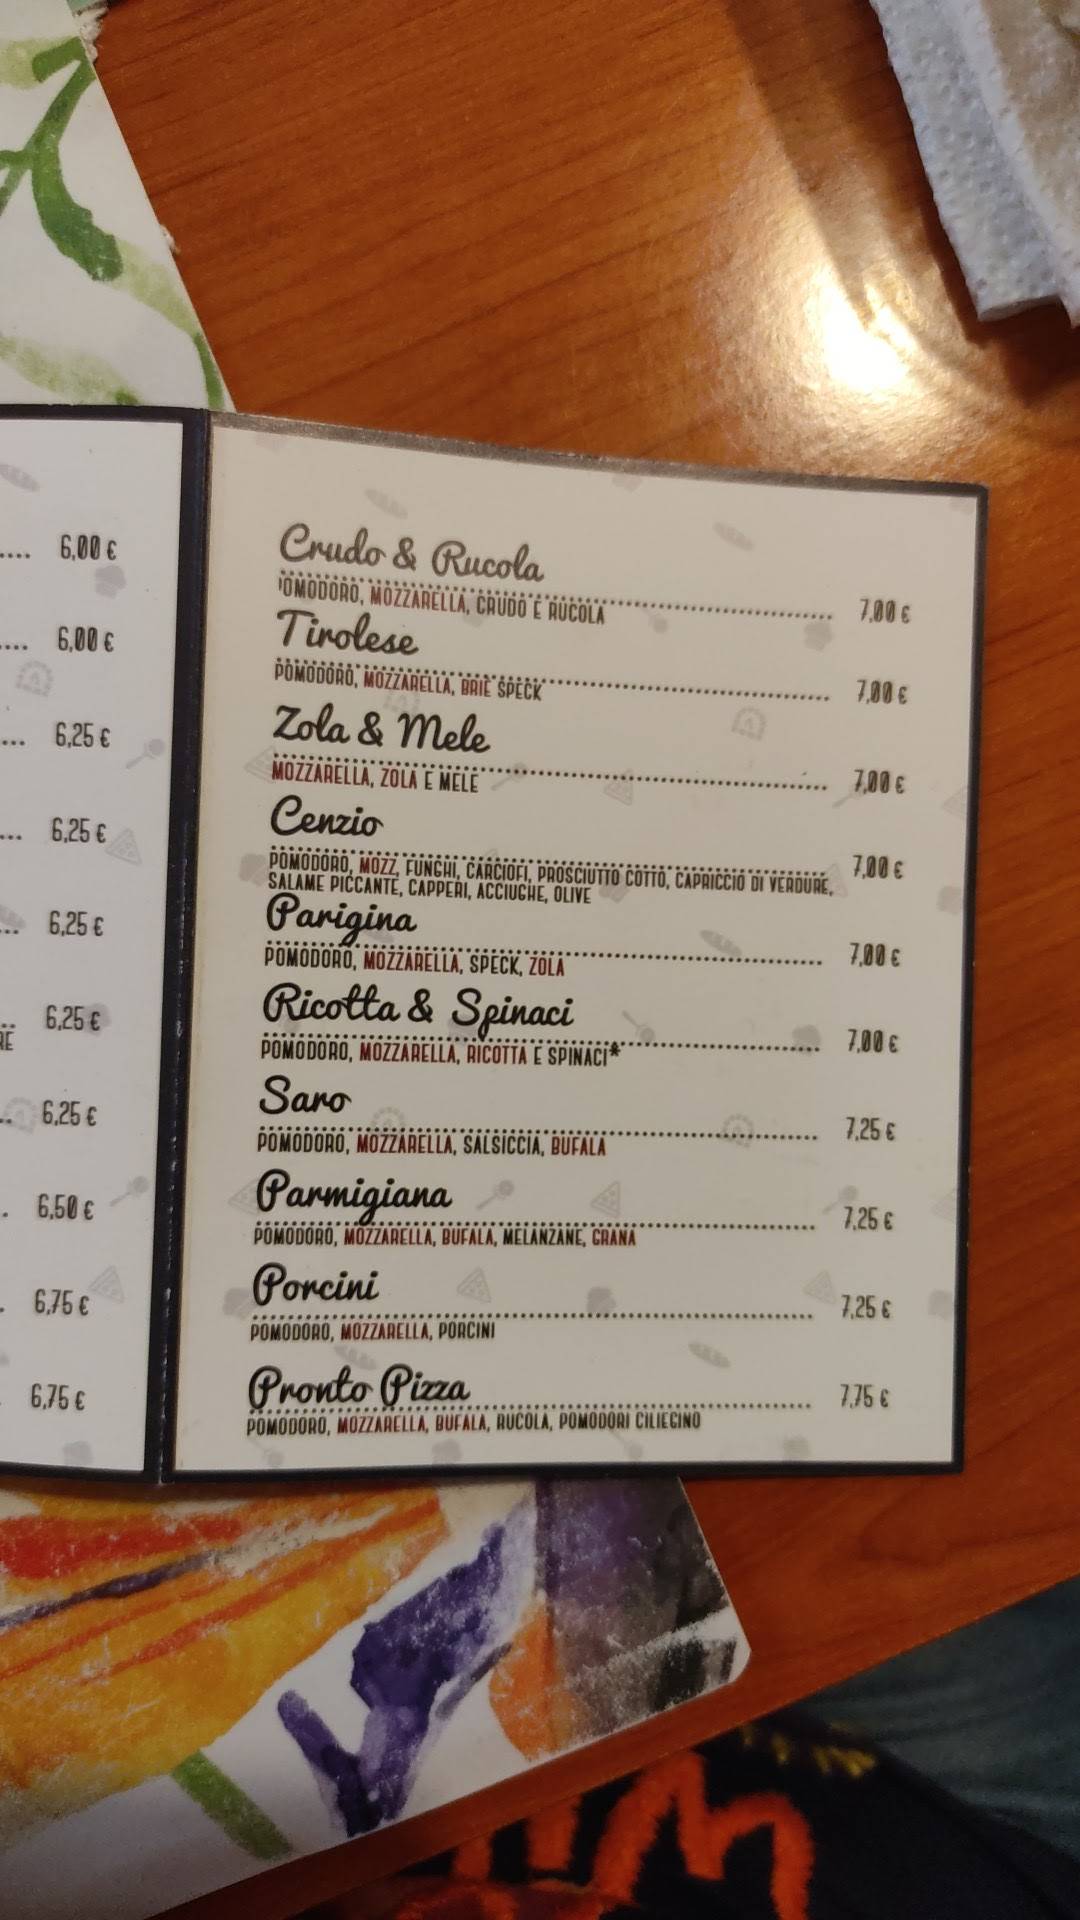 6,00 €
6,00 €
6,25 €
6,25 €
6,25 €
6,25 €
RE
6,25 €
6,50 €
6,75 €
6,75 €
Crudo & Rucola
POMODORO, MOZZARELLA, CRUDO E RUCOLA 7,00 €
Tirolese
POMODORO, MOZZARELLA, BRIE SPECK 7,00 €
Zola & Mele
MOZZARELLA, ZOLA E MELE 7,00 €
Cenzio
POMODORO, MOZZ, FUNGHI, CARCIOFI, PROSCIUTTO COTTO, CAPRICCIO DI VERDURE, 7,00 €
SALAME PICCANTE, CAPPERI, ACCIUGHE, OLIVE
Parigina
POMODORO, MOZZARELLA, SPECK, ZOLA 7,00 €
Ricotta & Spinaci
POMODORO, MOZZARELLA, RICOTTA E SPINACI* 7,00 €
Saro
POMODORO, MOZZARELLA, SALSICCIA, BUFALA 7,25 €
Parmigiana
POMODORO, MOZZARELLA, BUFALA, MELANZANE, GRANA 7,25 €
Porcini
POMODORO, MOZZARELLA, PORCINI 7,25 €
Pronto Pizza
POMODORO, MOZZARELLA, BUFALA, RUCOLA, POMODORI CILIEGINO 7,75 €